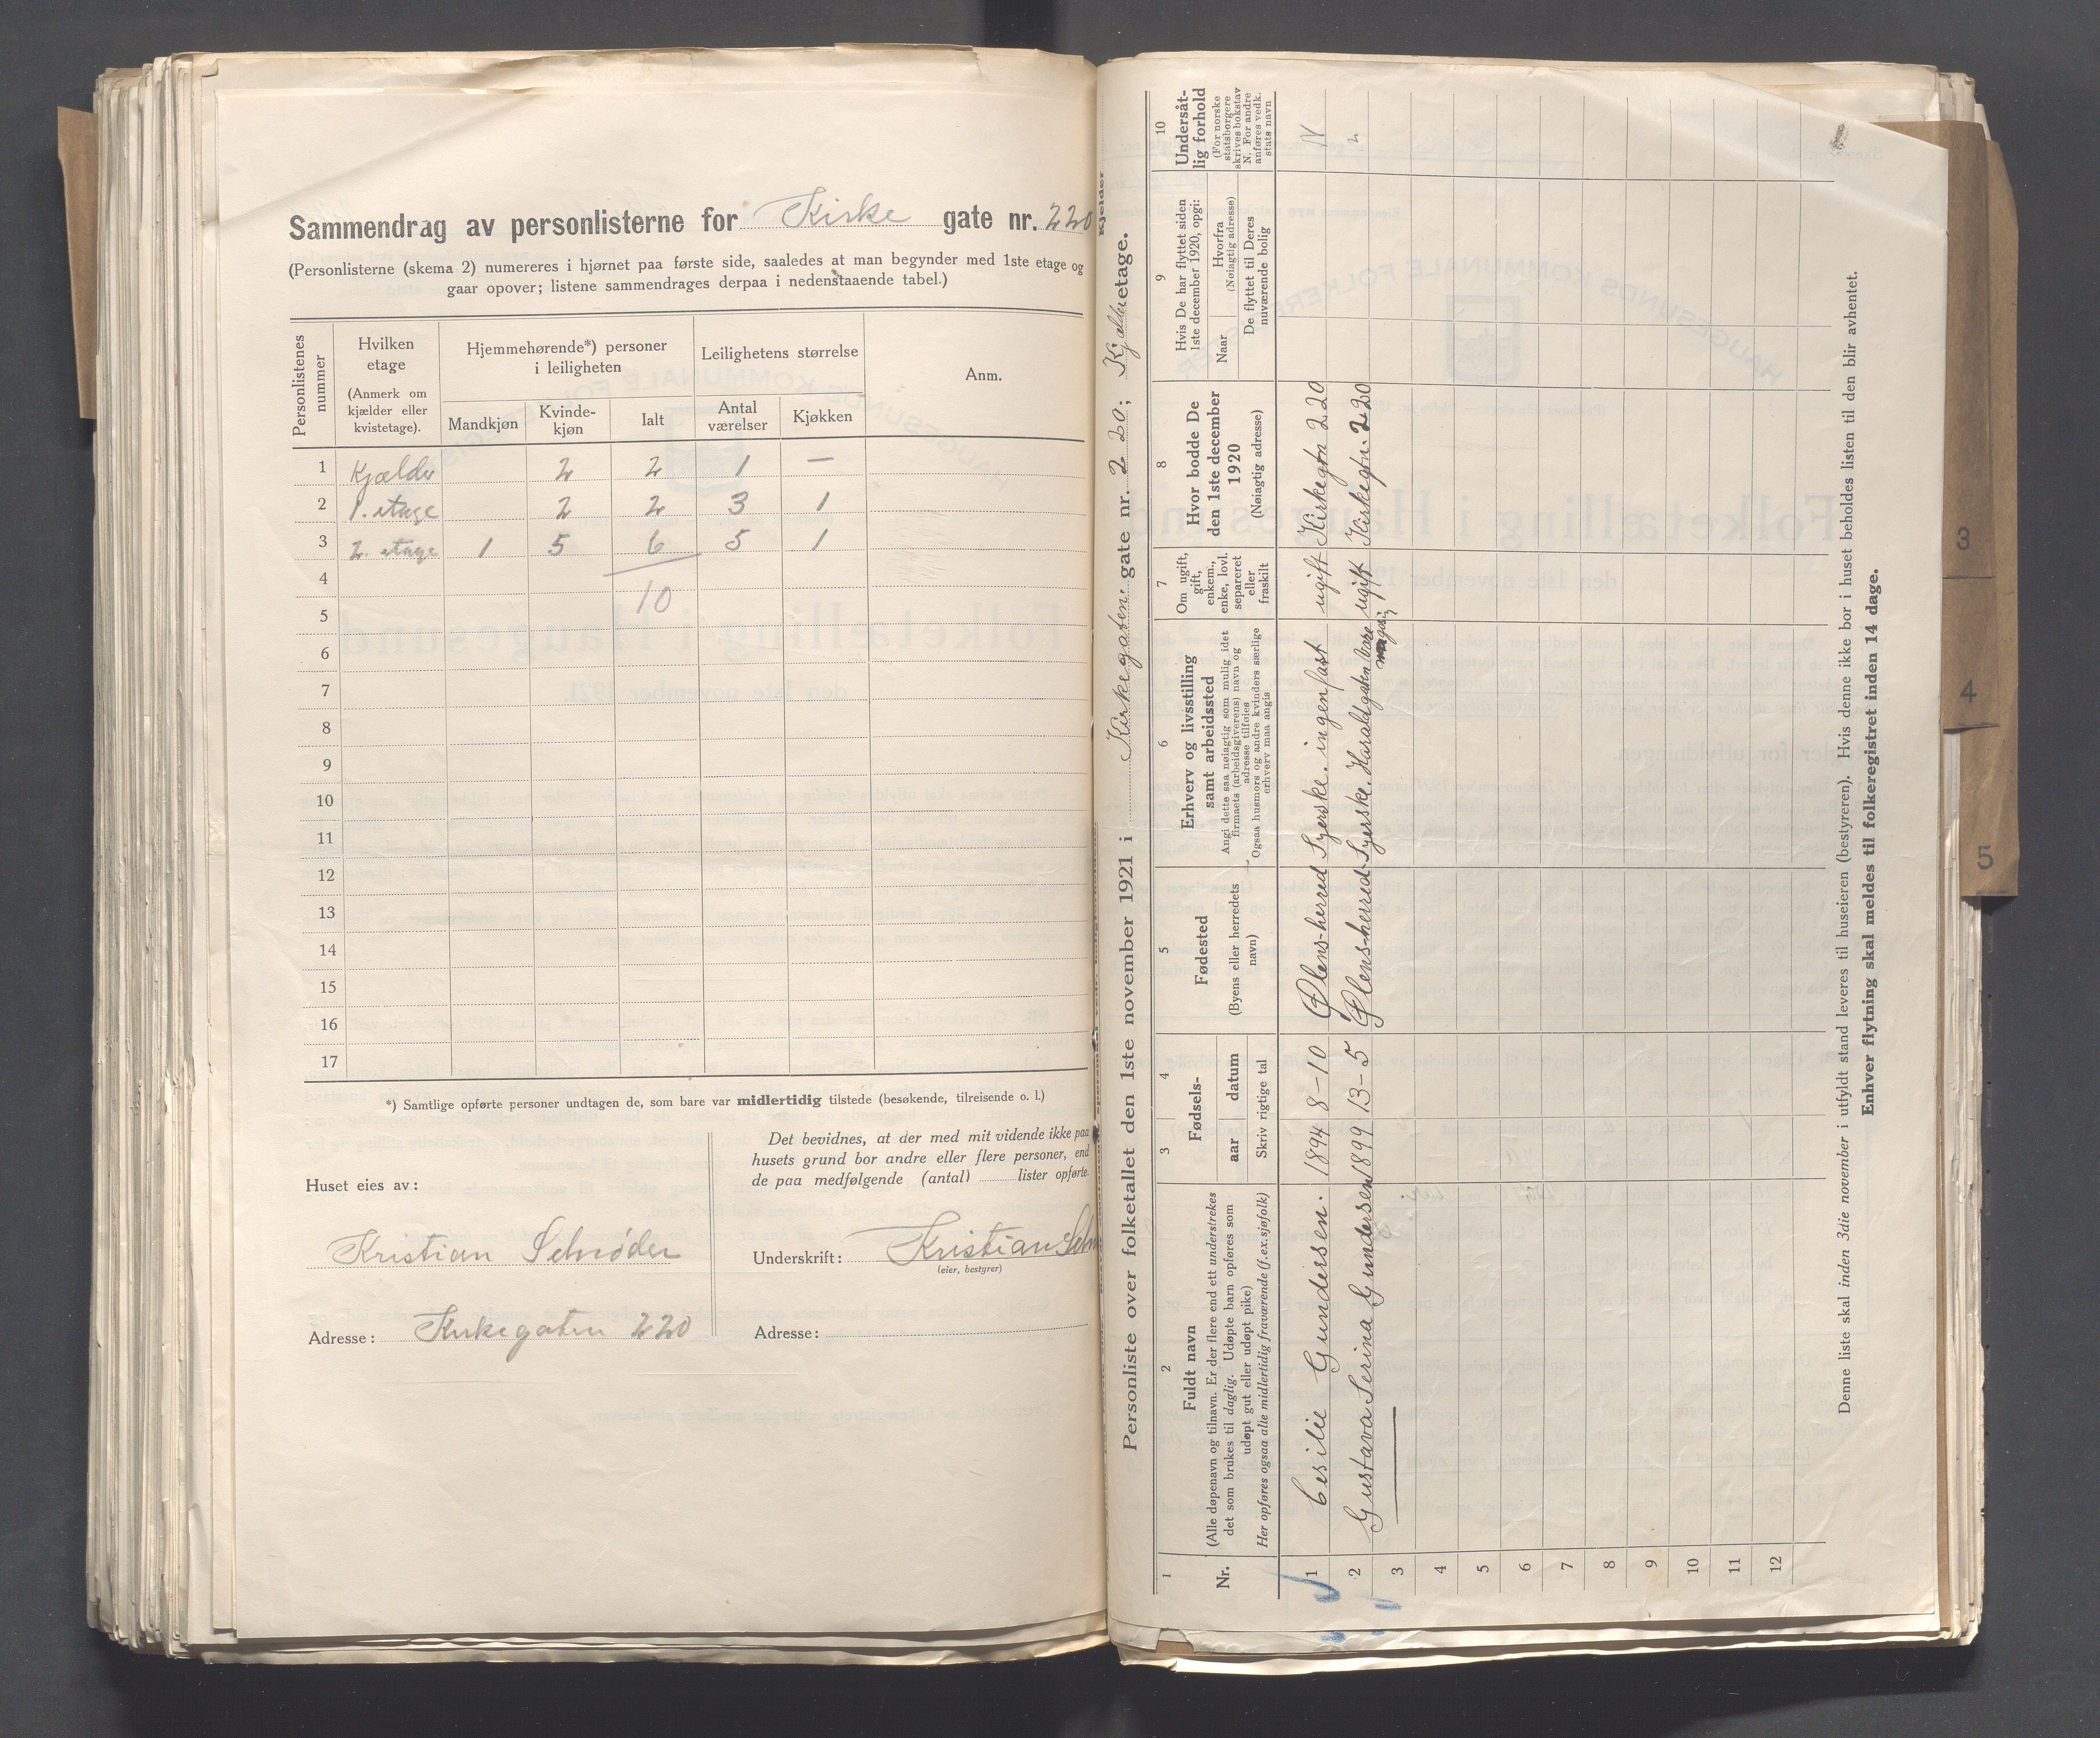 Sammendrag av personlisterne for Kirke gate nr. 220
(Personlisterne (skema 2) numereres i hjørnet paa første side, saaledes at man begynder med 1ste etage og
gaar opover; listene sammendrages derpaa i nedenstaaende tabel.)
Personlistenes nummer
Hvilken etage (Anmerk om kjælder eller kvistetage).
Hjemmehørende*) personer i leiligheten
Leilighetens størrelse
Anm.
Mandkjøn Kvinde-kjøn Ialt Antal værelser Kjøkken
1 Kjælder 2 2 1 —
2 1. etage 2 2 3 1
3 2. etage 1 5 6 5 1
4
5 10
6
7
8
9
10
11
12
13
14
15
16
17
*) Samtlige opførte personer undtagen de, som bare var midlertidig tilstede (besøkende, tilreisende o. l.)
Huset eies av:
Kristian Schrøder
Adresse: Kirkegaten 220
Det bevidnes, at der med mit vidende ikke paa
husets grund bor andre eller flere personer, end
de paa medfølgende (antal) lister opførte.
Underskrift: Kristian Schr
(eier, bestyrer)
Adresse:
Kjelder
Personliste over folketallet den 1ste november 1921 i Kirkegaten gate nr. 220; Kjælder etage.
1 2 3 4 5 6 7 8 9 10
Nr.
Fuldt navn
(Alle døpenavn og tilnavn. Er der flere end ett understrekes
det som brukes til daglig. Udøpte barn opføres som
udøpt gut eller udøpt pike)
Her opføres ogsaa alle midlertidig fraværende (f.ex.sjøfolk)
Fødsels-
aar datum
Skriv rigtige tal
Fødested
(Byens eller herredets
navn)
Erhverv og livsstilling
samt arbeidssted
Angi dette saa nøiagtig som mulig idet
firmaets (arbeidsgiverens) navn og
adresse tilføies
Ogsaa husmors og andre kvinders særlige
erhverv maa angis
Om ugift,
gift,
enkem.,
enke, lovl.
separeret
eller
fraskilt
Hvor bodde De
den 1ste december
1920
(Nøiagtig adresse)
Hvis De har flyttet siden
1ste december 1920, opgi:
Naar
Hvorfra
(Nøiagtig adresse)
De flyttet til Deres
nuværende bolig
Undersåt-
lig forhold
(For norske
statsborgere
skrives bokstav
N. For andre
anføres vedk.
stats navn
1 Cesilie Gundersen. 1894 8-10 Ølens-herred Syerske. ingen fast ugift Kirkegtn 220 N
2 Gustava Serina Gundersen 1899 13-5 Ølens-herred Syerske. Haraldsgaten Vare magasi ugift Kirkegtn. 220
3
4
5
6
7
8
9
10
11
12
Denne liste skal inden 3die november i utfyldt stand leveres til huseieren (bestyreren). Hvis denne ikke bor i huset beholdes listen til den blir avhentet.
Enhver flytning skal meldes til folkeregistret inden 14 dage.
3
4
5